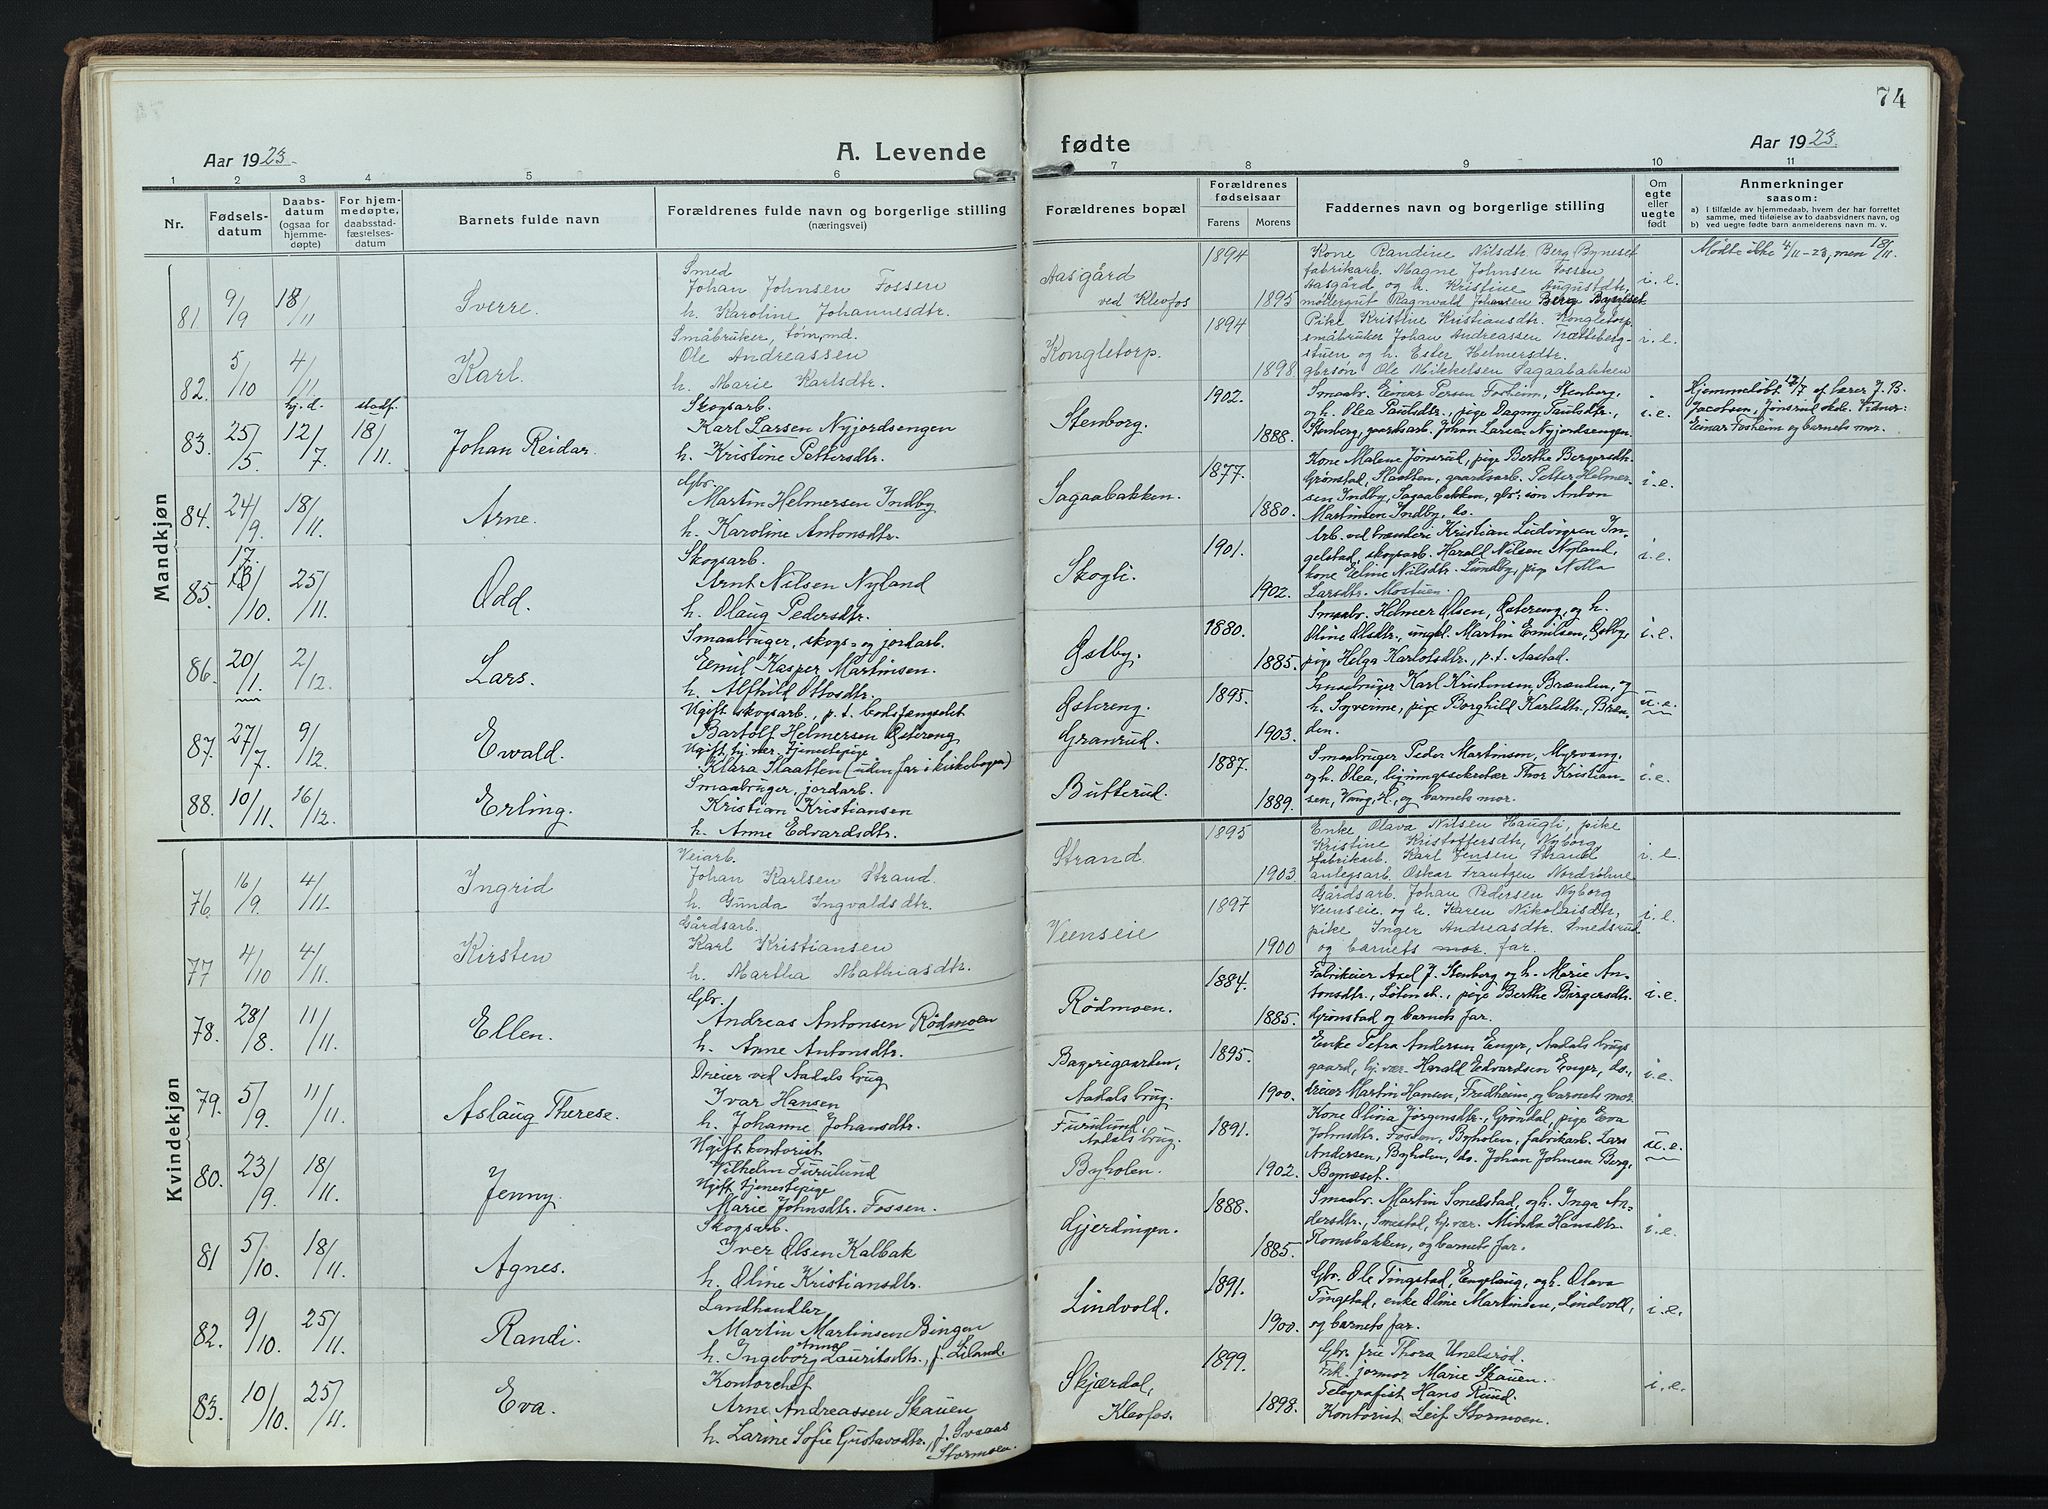 74
Aar 1923.
A. Levende
fødte
Aar 1923.
1 2 3 4 5 6 7 8 9 10 11
Nr.
Fødselsdatum
Daabsdatum (ogsaa for hjemmedøpte)
For hjemmedøpte, daabsstadfæstelsesdatum
Barnets fulde navn
Forældrenes fulde navn og borgerlige stilling
(næringsvei)
Forældrenes bopæl
Forældrenes fødselsaar
Farens Morens
Faddernes navn og borgerlige stilling
Om egte eller uegte født
Anmerkninger
saasom:
a) I tilfælde av hjemmedaab, hvem der har forrettet
samme, med tilføielse av to daabsvidners navn, og
b) ved uegte fødte barn anmelderens navn m. v.
Mandkjøn
81 9/9 18/11 Sverre.
Smed
Johan Johnsen Fossen
h. Karoline Johannesdtr.
Aasgård
ved Klevfos
1894 1895
Kone Randine Nilsdtr. Berg Byneset
fabrikarb. Magne Johnsen Fossen
Aasgård og h. Kristine Augustdtr,
møllergut Ragnvald Johansen Berg Byneset
i. e.
Mødte ikke 4/11-23, men 18/11.
82. 5/10 4/11 Karl.
Småbruker, tømmd.
Ole Andreassen
h. Marie Karlsdtr.
Kongletorp.
1894 1898
Pike Kristine Kristiansdtr. Kongletorp
småbruker Johan Andreassen Trætteberg-
stuen og h. Ester Helmersdtr.
gbrsøn Ole Mikkelsen Sagaabakken
i. e.
83. 25/5 hj.d. 12/7 stadf. 18/11 Johan Reidar.
Skogsarb.
Karl Larsen Nyjordsengen
h. Kristine Pettersdtr.
Stenborg.
1902. 1888.
Smaabr. Einar Persen Fosheim, Stenberg,
og h. Olea Paulsdtr., pige Dagny Paulsdtr.,
Stenberg, gaardsarb. Johan Larsen Nyjordsengen.
i. e.
Hjemmedøbt 12/7 af lærer J. B.
Jacobsen, Jønsrud skole. Vidner:
Einar Fosheim og barnets mor.
84. 24/9. 18/11. Arne.
Gbr.
Martin Helmersen Indby
h. Karoline Antonsdtr.
Sagaabakken.
1877. 1880.
Kone Malene Jønsrud, pige Berthe Bergersdtr.
Grønstad, Slaatten, gaardsarb. Petter Helmer-
sen Indby, Sagaabakken, gbr. søn Anton
Martinsen Indby, ds.
i. e.
85. 17. 18/10. 25/11. Odd.
Skogsarb.
Arnt Nilsen Nyland
h. Olaug Pedersdtr.
Skogli.
1901. 1902.
Arb. ved brænderi Kristian Ludvigsen In-
gelstad, skogsarb. Harald Nilsen Nyland,
kone Eline Nilsdtr. Lundby, pige Nella
Larsdtr. Mostuen.
i. e.
86. 20/1. 2/12. Lars.
Smaabruger, skogs- og jordarb.
Emil Kasper Martinsen.
h. Alfhild Ottosdtr.
Østby.
1880. 1885.
Smaabr. Helmer Olsen, Østereng, og h.
Oline Olsdtr., ungk. Martin Emilsen, Østby,
pige Helga Karlotsdtr., p. t. Aastad.
i. e.
87. 27/7. 9/12. Ewald.
Ugift skogsarb., p. t. bodsfængslet
Bartolf Helmersen Østereng
Ugift hj. vær. tjenestepige
Klara Slaatten (uden far i kirkebogen)
Østereng.
Granrud.
1895. 1903.
Smaabruger Karl Kristinsen, Brænden, og
h. Syverine, pige Borghild Karlsdtr., Bræn-
den.
u. e.
88. 10/11. 16/12. Erling.
Smaabruger, jordarb.
Kristian Kristiansen
h. Anne Edvardsdtr.
Butterud.
1887. 1889.
Smaabruger Peder Martinsen, Myrvang,
og h. Olea, ligningssekretær Thor Kristian-
sen, Vang, H., og barnets mor.
i. e.
Kvindekjøn
76. 16/9. 4/11. Ingrid
Veiarb.
Johan Karlsen Strand.
h. Gunda Ingvaldsdtr.
Strand
1895 1903
Enke Olava Nilsen Haugli, pike
Kristine Kristoffersdtr, Nyborg
fabrikarb. Karl Jensen Strand
anlegsarb. Oskar Frantzen Nordrøhne
i. e.
77 4/10 4/11. Kirsten
Gårdsarb.
Karl Kristiansen
h. Martha Mathiasdtr.
Veenseie
1897 1900
Gårdsarb. Johan Pedersen Nyborg
Veenseie. og h. Karen Nikolaisdtr,
pike Inger Andreasdtr. Smedsrud
og barnets mor. far.
i. e.
78. 28/8. 11/11. Ellen.
Gbr.
Andreas Antonsen Rödmoen
h. Anne Antonsdtr.
Rödmoen.
1884. 1885.
Fabrikeier Axel J. Stenberg og h. Marie An-
tonsdtr., Löten st., pige Berthe Birgersdtr.
Grønstad og barnets far.
i. e.
79. 5/9. 11/11. Aslaug Therese.
Dreier ved Aadals brug
Ivar Hansen
h. Johanne Johansdtr.
Bagerigaarden,
Aadals brug.
1895. 1900.
Enke Petra Andersen Enger, Aadals brugs
gaard, hj. vær. Harald Edvardsen Enger, ds.,
dreier Martin Hansen, Fredheim, og barnets mor.
i. e.
80. 23/9. 18/11. Jenny.
Ugift kontorist
Vilhelm Furulund
Ugift tjenestepige
Marie Johnsdtr. Fossen.
Furulund,
Aadals brug.
Byholen.
1891. 1902.
Kone Olivia Jørgensdtr., Grøndal, pige Eva
Johnsdtr. Fossen, Byholen, fabrikarb. Lars
Andersen, Byholen, ds. Johan Johnsen Berg,
Bynæset.
u. e.
81 5/10. 18/11. Agnes.
Skogsarb.
Iver Olsen Kalbak
h. Oline Kristiansdtr.
Gjerdingen.
1888. 1885.
Smaabr. Martin Smedstad, og h. Inga An-
dersdtr., Smestad, hj. vær. Minda Hansdtr.
Romsbakken, og barnets far.
i. e.
82. 9/10. 25/11. Randi.
Landhandler
Martin Martinsen Bingen
h. Ingeborg Anna Lauritsdtr., f. Liland.
Lindvold.
1891. 1900.
Gbr. Ole Tingstad, Englaug, og h. Olava
Tingstad, enke Oline Martinsen, Lindvoll,
og barnets far.
i. e.
83. 10/10. 25/11. Eva.
Kontorchef
Arne Andreassen Skauen
h. Larine Sofie Gustavsdtr., f.
Stormoen.
Skjærdal,
Klevfos.
1899. 1898.
Gbr. frue Thora Unelsrød.
Frk. jormor Marie Skauen.
Telegrafist Hans Rund.
Kontorist Leif Stormoen.
i. e.